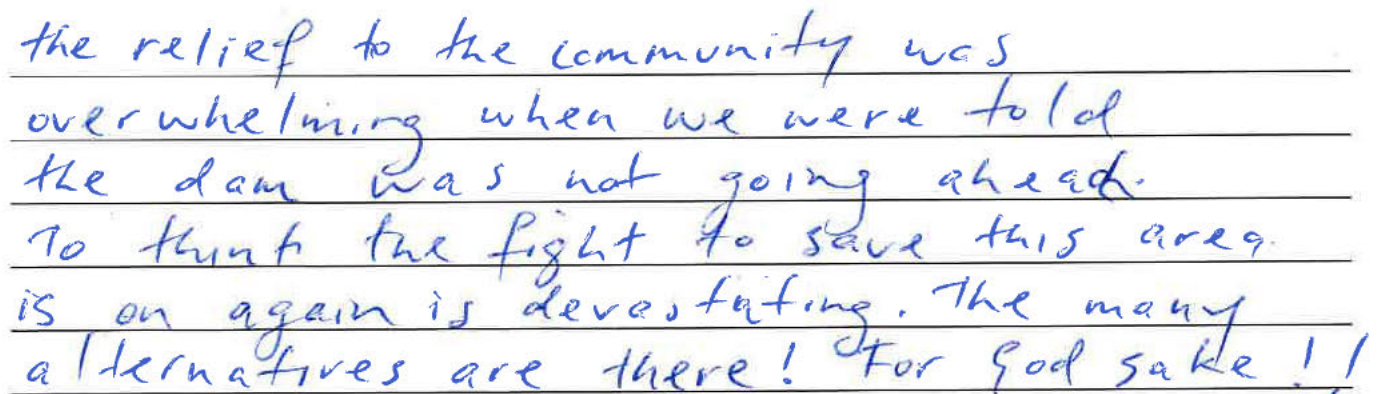 the relief to the community was
overwhelming when we were told
the dam was not going ahead.
To think the fight to save this area
is on again is devastating. The many
alternatives are there! For God sake!!